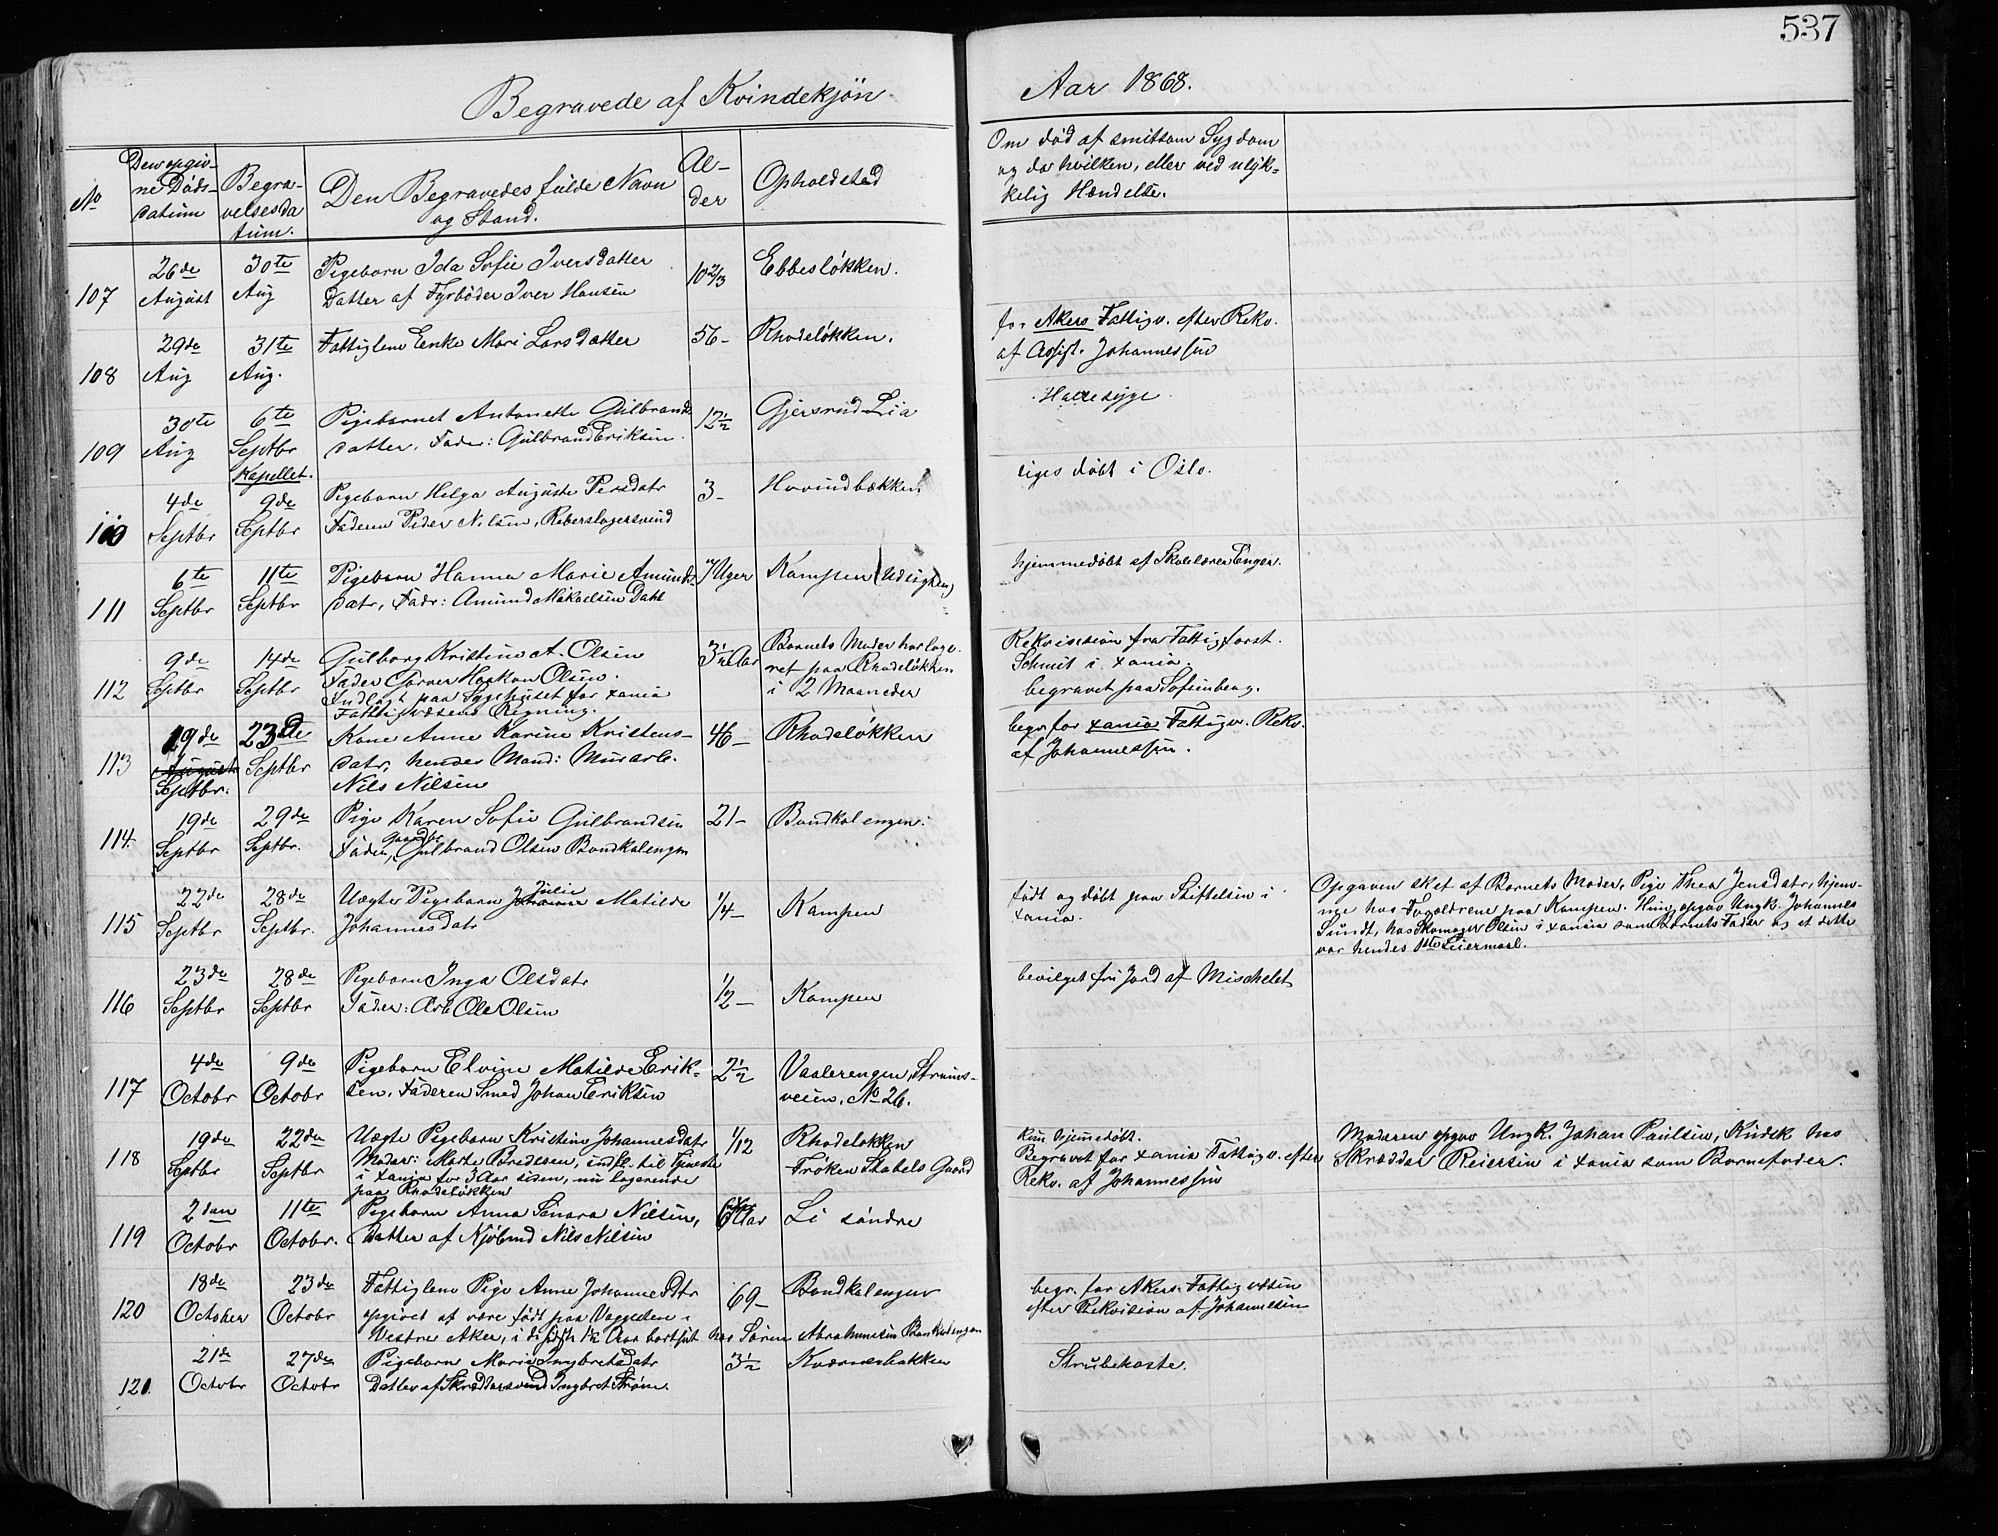 537
Begravede af Kvindekjøn
Aar 1868.
No
Den opgiv-
ne Døds-
datum
Begra-
velsesda
tum.
Den Begravedes fulde Navn
og Stand.
Al-
der
Opholdsted
Om død af smitsom Sygdom
og da hvilken, eller ved ulyk-
kelig Hændelse.
107
26de
August
30te
Aug
Pigebarn Ida Sofie Iversdatter
Datter af Fyrbøder Iver Hansen
10 2/3
Ebbesløkken.
108
29de
Aug
31te
Aug.
Fattiglem Enke Mari Larsdatter
56-
Rhodeløkken.
for Akers Fattigv. efter Rekv.
af Assist. Johannessen
109
30te
Aug
6te
Septbr
Kapellet.
Pigebarnet Antonette Gulbrands
datter. Fader: Gulbrand Eriksen.
12½
Gjersrud Lia
Halssyge
110
4de
Septbr
9de
Septbr
Pigebarn Helga Auguste Persdatr
Faderen Peder Nilsen, Reberslagersvend
3-
Hovindbækken
døbt i Oslo.
111
6te
Septbr
11te
Septbr
Pigebarn Hanna Marie Amunds-
datr, Fadr: Amund Mikaelsen Dahl
7 Uger
Kampen (Udsigten)
hjemmedøbt af Skolelærer Enger.
112
9de
Septbr
14de
Septbr
Gulborg Kristine A. Olsen
Fader Garver Haakon Olsen.
Indlagt paa Sygehuset for Xania
Fattigvæsens Regning.
3½ Aar
Barnets Moder har loge-
ret paa Rhodeløkken
i 2 Maaneder
Rekvisision fra Fattigforst.
Schmit i Xania.
begravet paa Sofienberg.
113
19de
August
Septbr.
23de
Septbr
Kone Anne Karine Kristens-
datr, hendes Mand: Murarb.
Nils Nilsen
46-
Rhodeløkken
begr. for Xania Fattigv. Rekv.
af Johannessen.
114
19de
Septbr
29de
Septbr.
Pige Karen Sofie Gulbrandsen
Fader, Gaardbr Gulbrand Olsen Bondkalengen
21-
Bondkalengen
115
22de
Septbr
28de
Septbr.
Uægte Pigebarn Johanne Julie Matilde
Johannesdatr
¼-
Kampen
født og døbt paa Stiftelsen i
Xania.
Opgaven sket af Barnets Moder, Pige Thea Jensdatr, hjem-
me hos Forældrene paa Kampen. Hun opgav Ungk. Johannes
Sundt, hos Skomager Olsen i Xania som Barnets Fader og at dette
var hendes 1ste Leiermaal.
116
23de
Septbr
28de
Septbr
Pigebarn Inga Olsdatr
Fader: Arb Ole Olsen
½-
Kampen
bevilget fri Jord af Mischelet
117
4de
Octobr
9de
Octobr
Pigebarn Elvine Matilde Erik-
sen. Faderen Smed Johan Eriksen
2½
Vaalerengen, Strøms-
veien. No 26.
118
19de
Septbr
22de
Septbr
Uægte Pigebarn Kristine Johannesdatr
Moder: Marte Bredesen, indfl. til Tjeneste
i Xania for 3 Aar siden, nu logerende
paa Rhodeløkken
1/12
Rhodeløkken
Frøken Stabels Gaard
kun hjemedøbt.
Begravet for Xania Fattigv. efter
Rekv. af Johannessen
Moderen opgav Ungk. Johan Paulsen, Kudsk hos
Skrædder Reiersen i Xania som Barnefader.
119
2den
Octobr
11te
Octobr.
Pigebarn Anna Senara Nilsen,
Datter af Kjøbmd Nils Nilsen
6 Aar
Li søndre
120
18de
October
23de
Octobr
Fattiglem Pige Anne Johannesdtr
opgivet at være født paa Voggesten i
Vestre Aker, i de sidste 1½ Aar bortsat hos Søren Abrahamsen Bonkalengen
69-
Bondkalengen
begr. for Akers Fattigvæsen
efter Rekvision af Johannesen
121.
21de
Octobr
27de
Octobr
Pigebarn Marie Ingbretsdatr
Datter af Skræddersvend Ingbret Strøm.
3½
Kværnerbakken
Strubehoste.